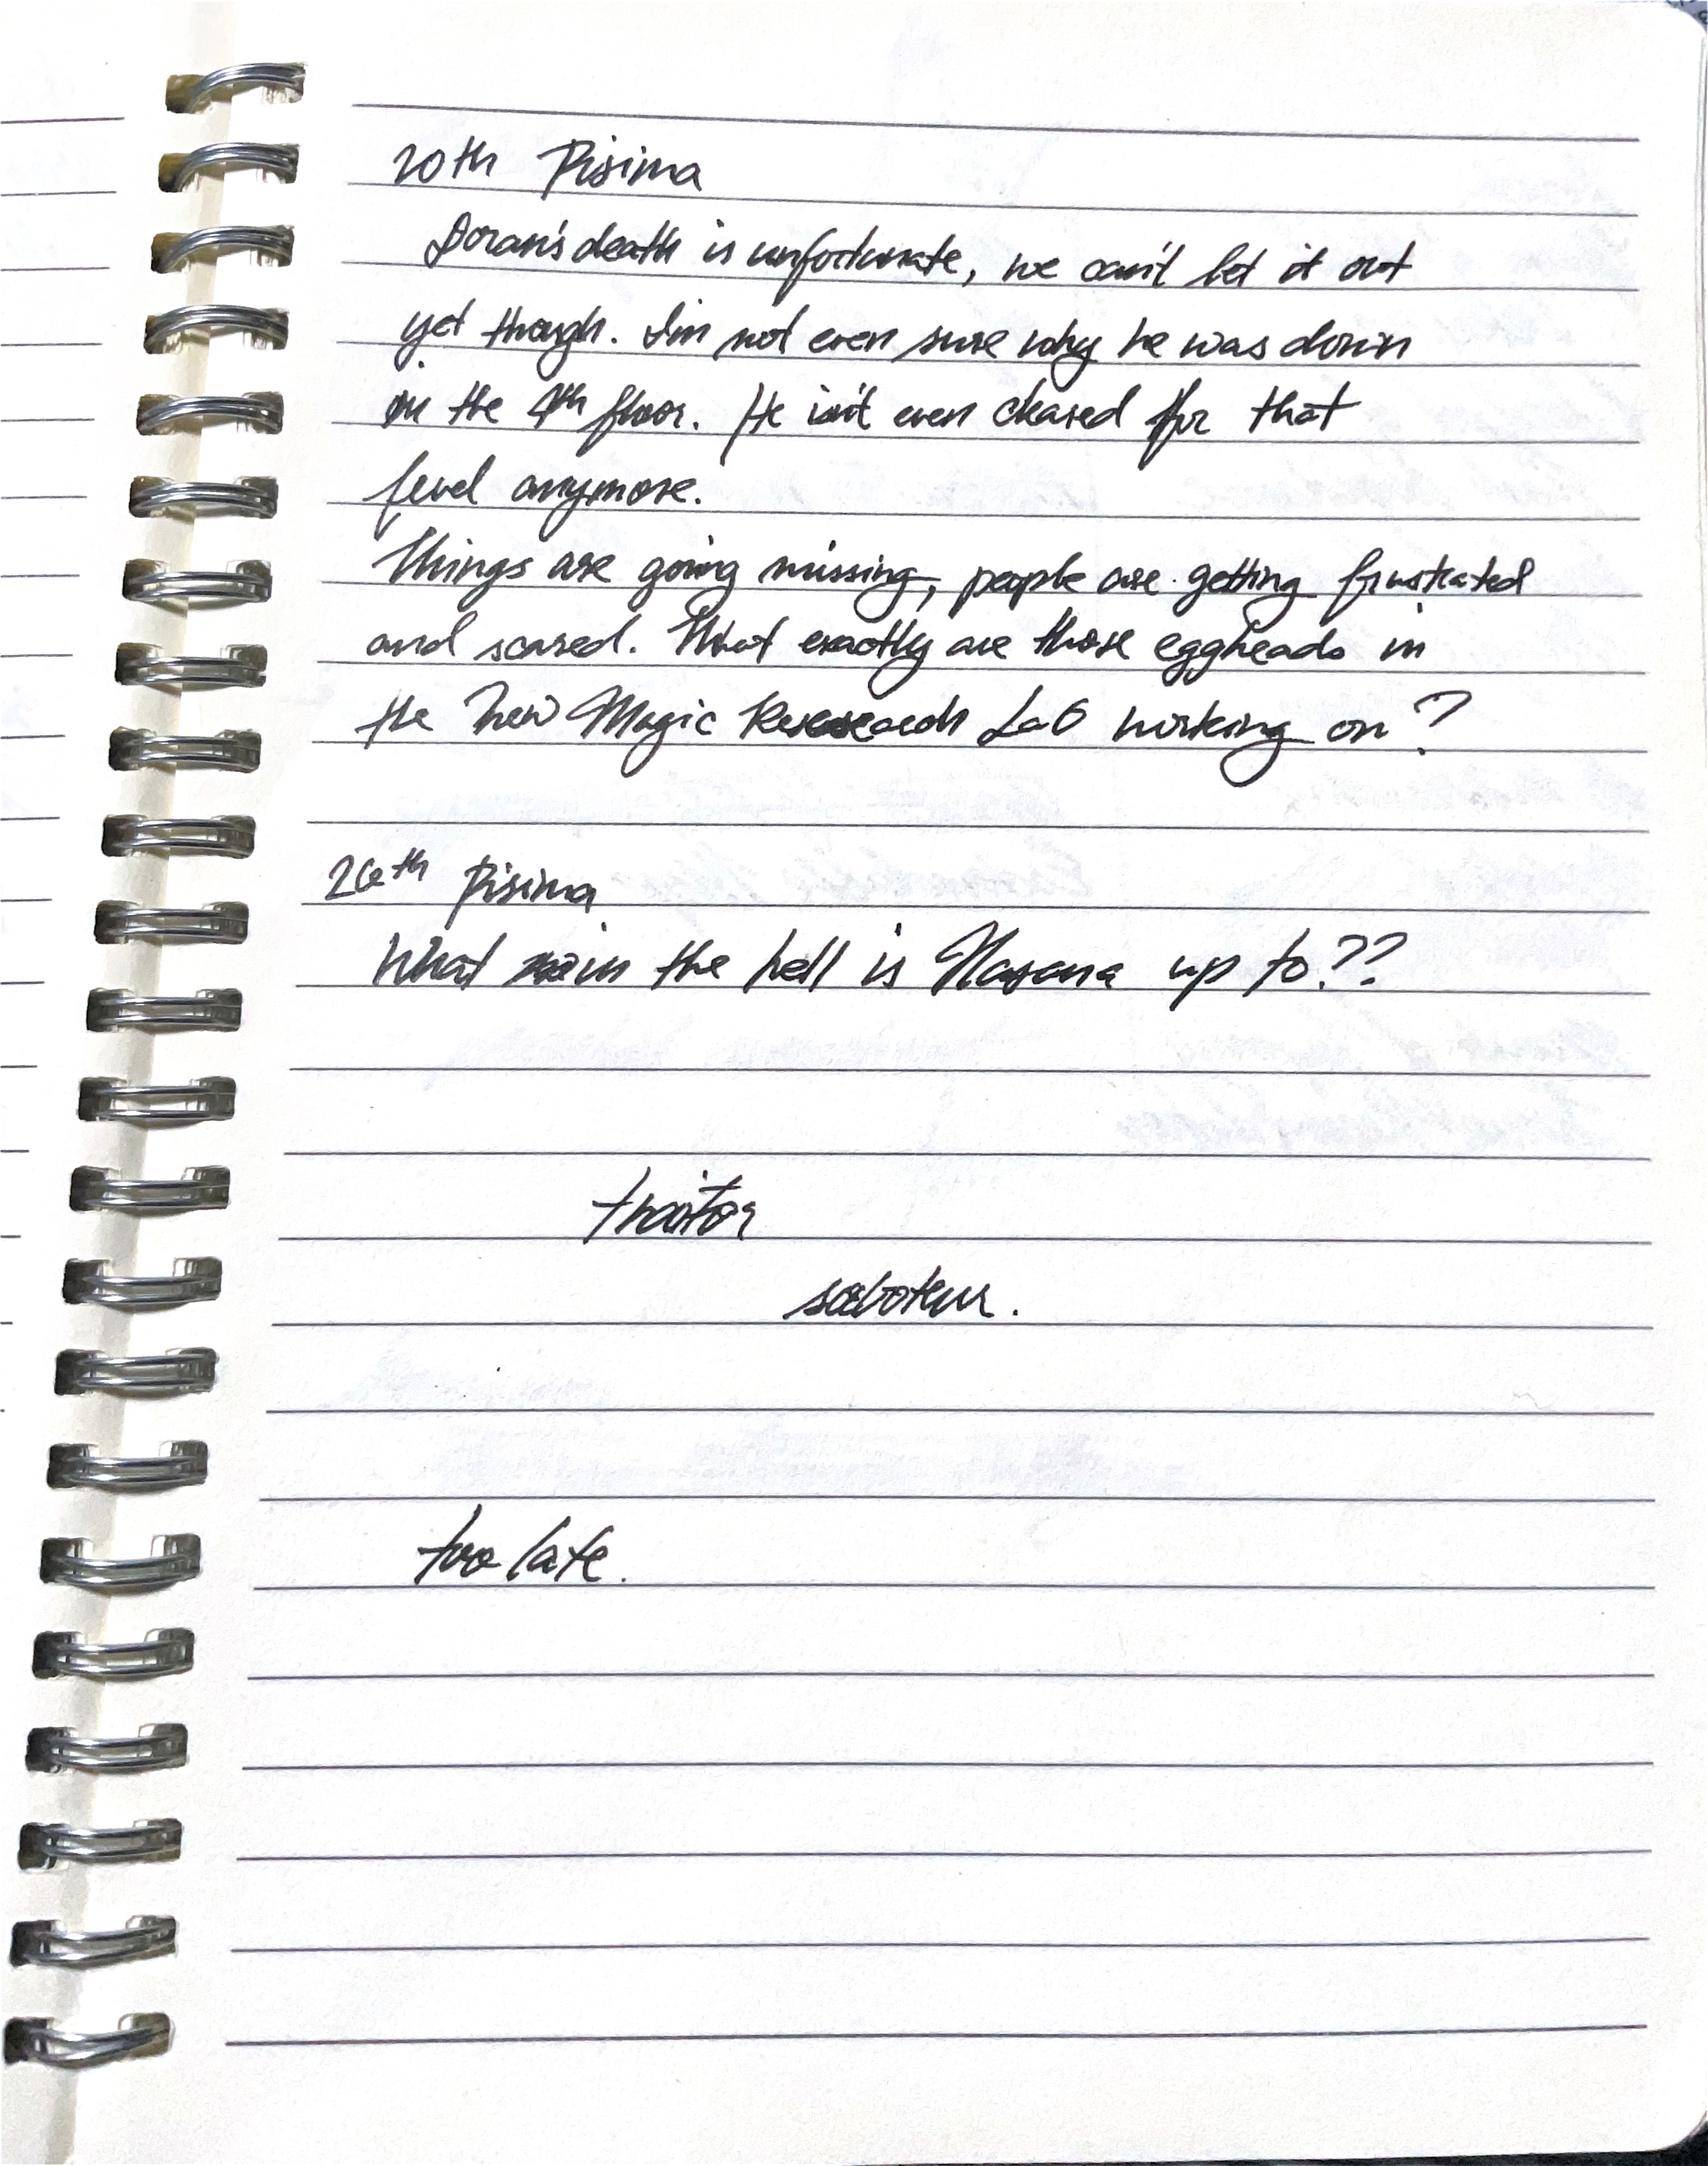 20th Pisima
Doran's death is unfortunate, we can't let it out
yet though. I'm not even sure why he was down
in the 4th floor. He isn't even cleared for that
level anymore.
Things are going missing, people are getting frustrated
and scared. What exactly are those eggheads in
the New Magic Research Lab working on?
26th Pisima
What in the hell is Nasana up to??
traitor
saboteur.
too late.